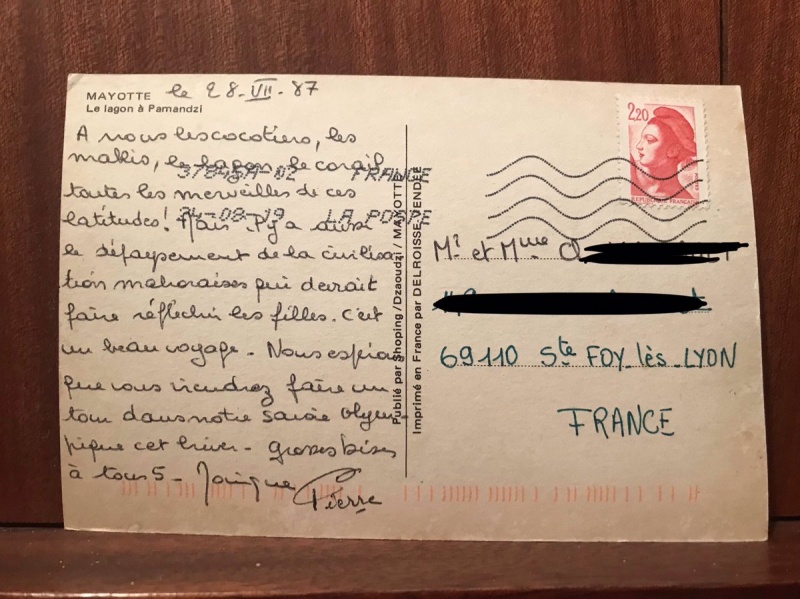 MAYOTTE
Le lagon à Pamandzi
le 28-VII-87
A nous les cocotiers, les
makis, le lagon, le corail
toutes les merveilles de ces
latitudes! Mais il y a aussi
le dépaysement de la civilisa
tion mahoraises qui devrait
faire réfléchir les filles. C'est
un beau voyage. Nous espérons
que vous viendrez faire un
tour dans notre Savoie olym
pique cet hiver - grosses bises
à tous 5 -
Pierre
Publié par Shoping / Dzaoudzi / MAYOTTE
Imprimé en France par DELROISSE-VENDÉE
37848A-02 FRANCE
24-08-19 LA POSTE
2,20
REPUBLIQUE FRANÇAISE
Mr et Mme
69110 Ste FOY-lès-LYON
FRANCE